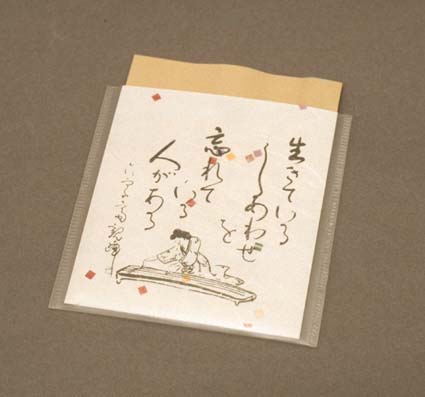 生きている
しあわせを
忘れて
いる
人がある